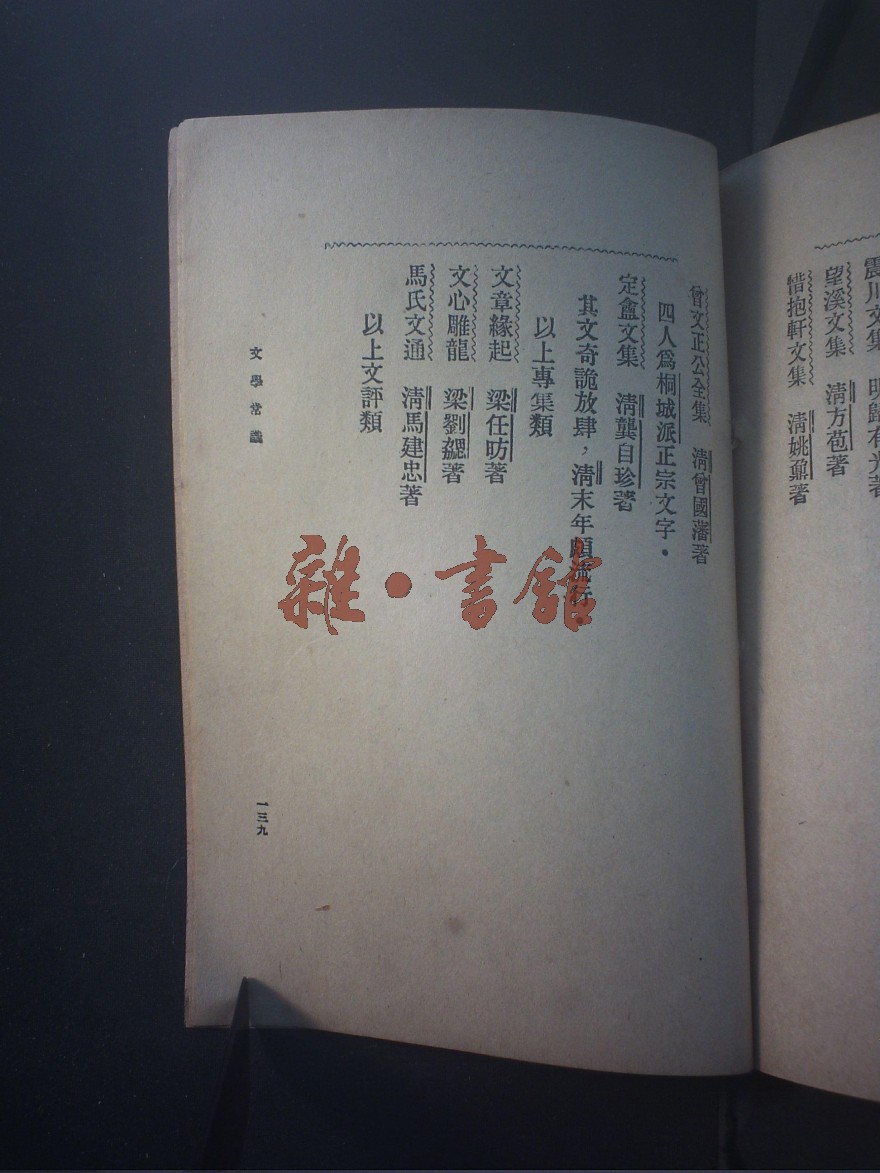 震川文集　明歸有光著
望溪文集　清方苞著
惜抱軒文集　清姚鼐著
曾文正公全集　清曾國藩著
四人爲桐城派正宗文字．
定盦文集　清龔自珍著
其文奇詭放肆，清末年頗流行．
以上專集類
文章緣起　梁任昉著
文心雕龍　梁劉勰著
馬氏文通　清馬建忠著
以上文評類
文學常識
一三九
雜·書館